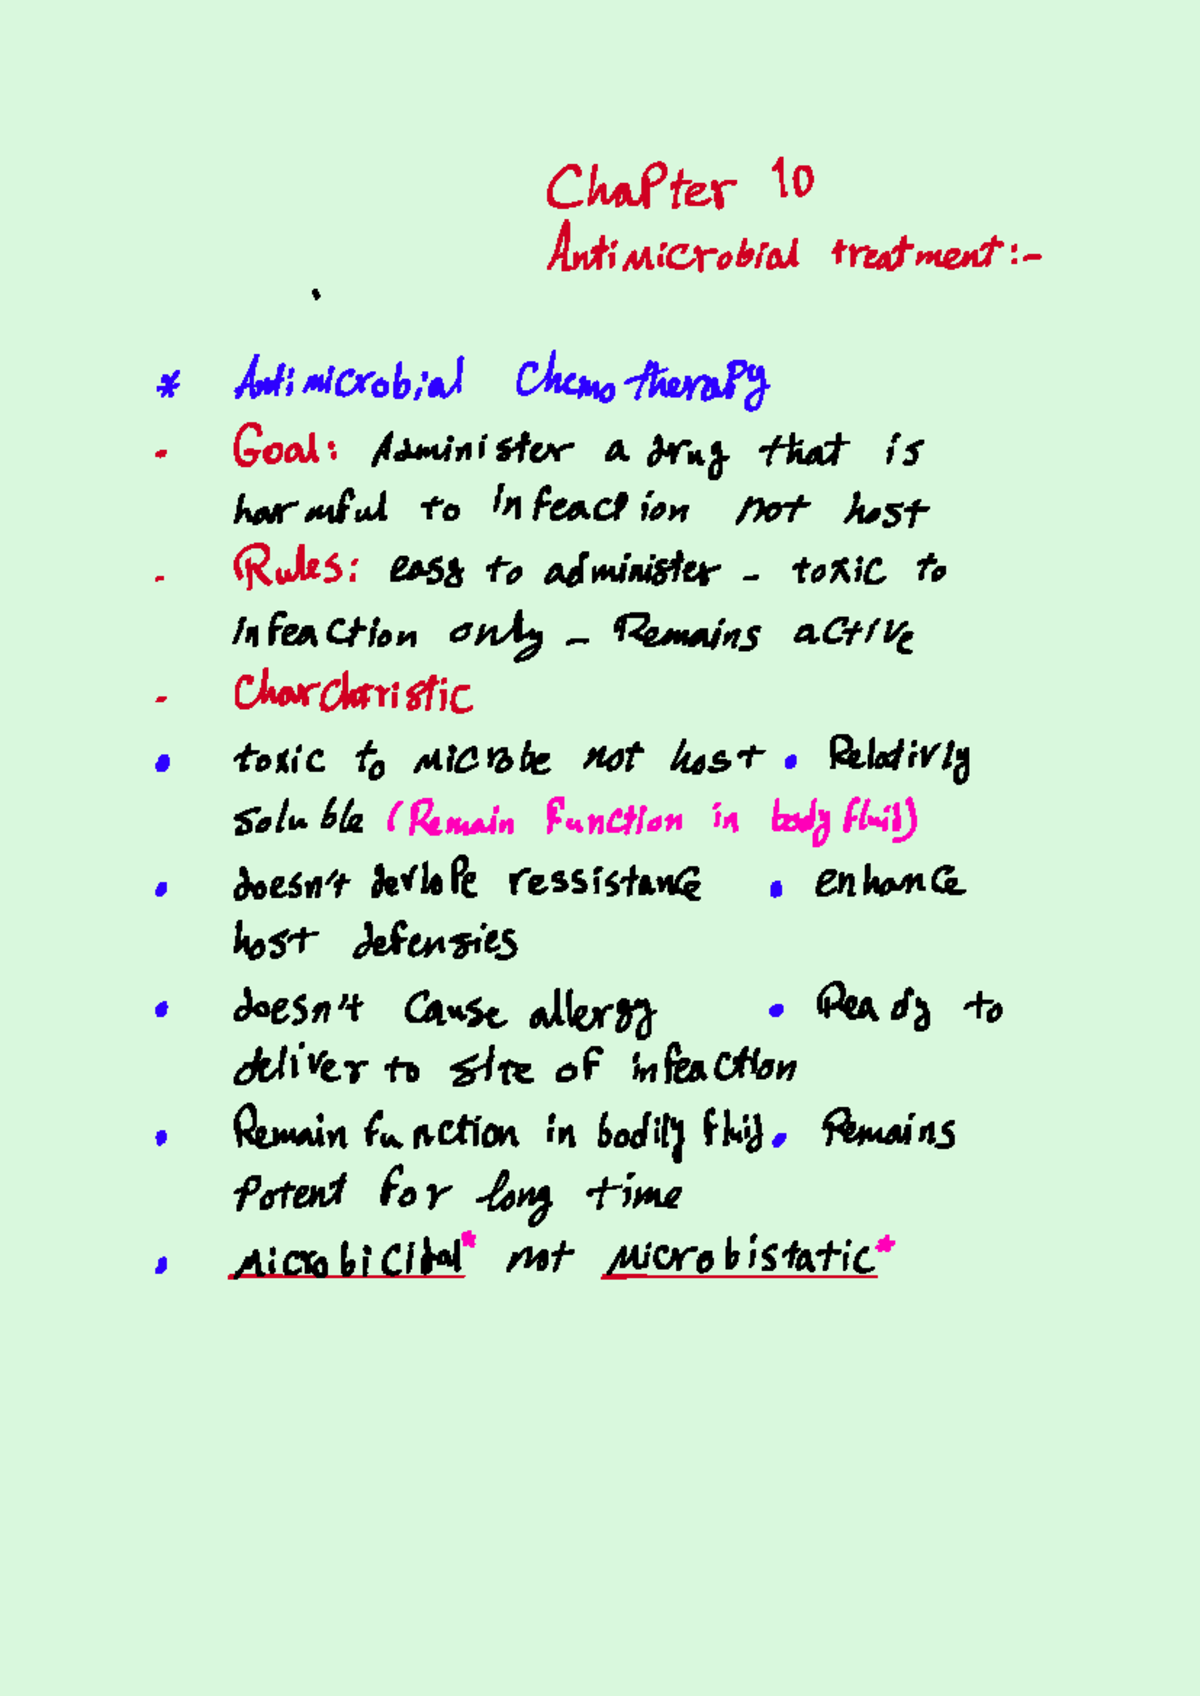 Chapter 10
Antimicrobial treatment:-
* Antimicrobial Chemotherapy
- Goal: Administer a drug that is
harmful to infeaction not host
- Rules: easy to administer - toxic to
infeaction only - Remains active
- Charchtristic
• toxic to microbe not host • Relativly
soluble (Remain function in body fluid)
• doesn't devlope ressistance • enhance
host defensies
• doesn't cause allergy • Ready to
deliver to site of infeaction
• Remain function in bodily fluid • Remains
potent for long time
• microbicidal* not microbistatic*